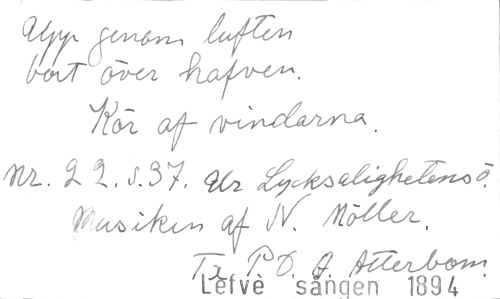 Upp genom luften
bort över hafven.
Kör af vindarna.
Nr. 22. s. 37. Ur Lycksalighetens ö.
Musiken af N. Möller.
Tx P. D. A. Atterbom.
Lefvè sången 1894